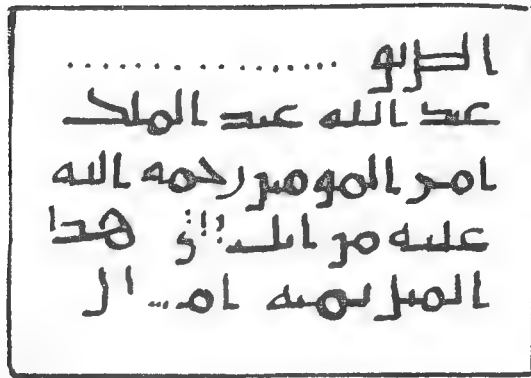 الطريق ................
عبد الله عبد الملك
امير المومنين رحمه الله
عليه من هذا
الميل ثمنيه ام...ال